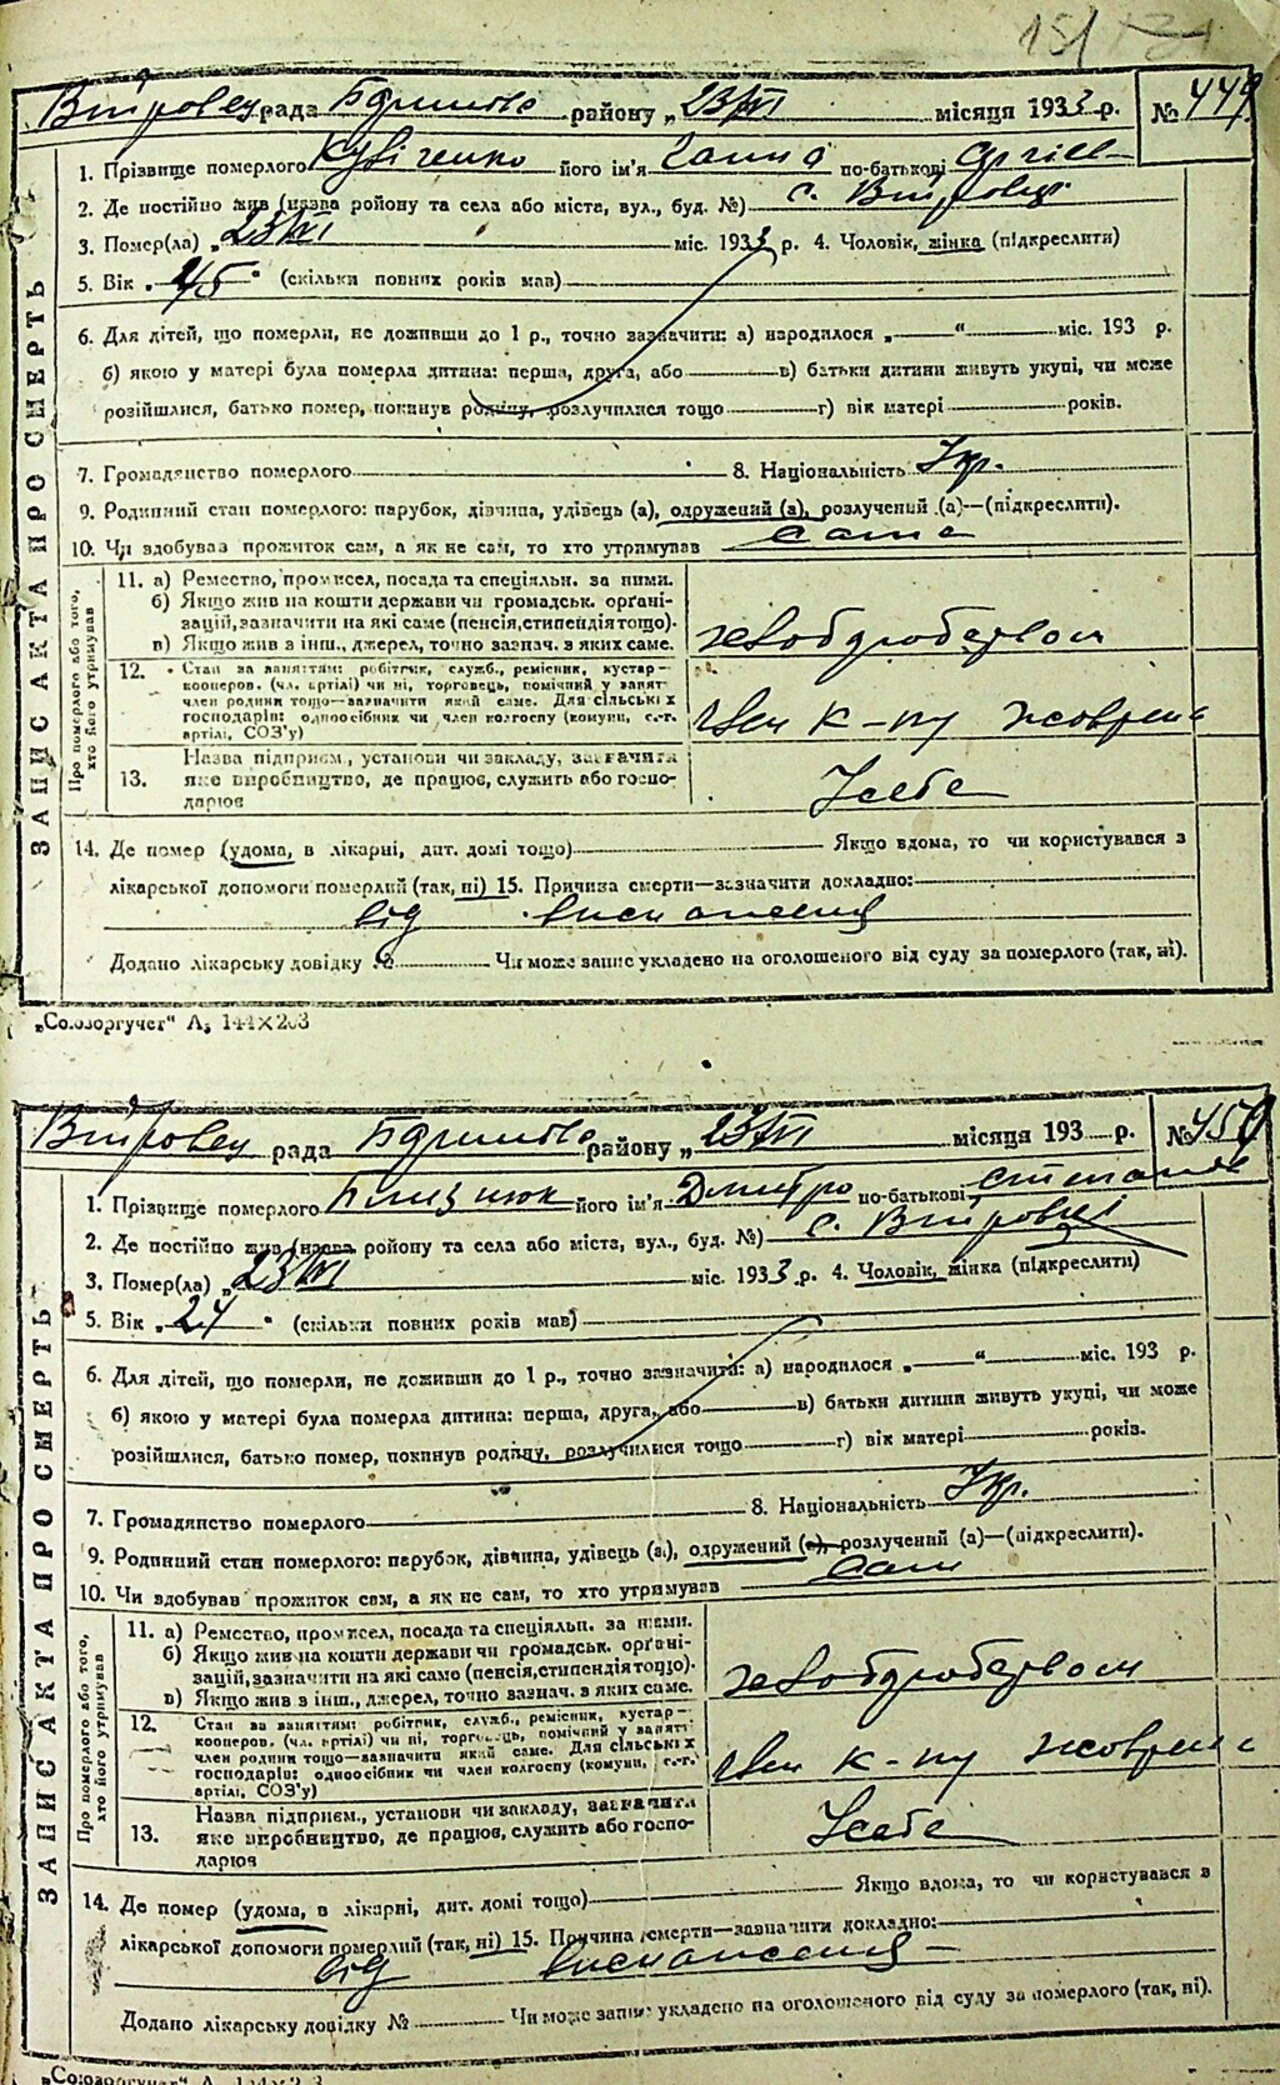 151
рада району „23/VI місяця 1933 р. № 449
1. Прізвище померлого його ім'я Ганна по-батькові
2. Де постійно жив (назва ройону та села або міста, вул., буд. №) с. Війтровці
3. Помер(ла) „23/VI міс. 1933 р. 4. Чоловік, жінка (підкреслити)
5. Вік „45" (скільки повних років мав)
6. Для дітей, що померли, не доживши до 1 р., точно зазначити: а) народилося „ " міс. 193 р.
б) якою у матері була померла дитина: перша, друга, або в) батьки дитини живуть укупі, чи може
розійшлися, батько помер, покинув родину, розлучилися тощо г) вік матері років.
7. Громадянство померлого 8. Національність Укр.
9. Родинний стан померлого: парубок, дівчина, удівець (а), одружений (а), розлучений (а)—(підкреслити).
10. Чи здобував прожиток сам, а як не сам, то хто утримував сама
ЗАПИСКА ПРО СМЕРТЬ
Про померлого або того, хто його утримував
11. а) Ремество, промисел, посада та спеціяльн. за ними.
б) Якщо жив на кошти держави чи громадськ. орґані-
зацій, зазначити на які саме (пенсія, стипендія тощо).
в) Якщо жив з інш., джерел, точно зазнач. з яких саме.
хліборобством
12. Стан за заняттям: робітник, служб., ремісник, кустар—
кооперов. (чл. артілі) чи ні, торговець, помічний у занят.
член родини тощо—зазначити який саме. Для сільських
господарів: одноосібник чи член колгоспу (комуни, с.-г.
артілі, СОЗ'у)
член к-пу
13. Назва підприєм., установи чи закладу, зазначити
яке виробництво, де працює, служить або госпо-
дарює
У себе
14. Де помер (удома, в лікарні, дит. домі тощо) Якщо вдома, то чи користувався з
лікарської допомоги померлий (так, ні) 15. Причина смерти—зазначити докладно:
від виснаження
Додано лікарську довідку № Чи може запис укладено на оголошеного від суду за померлого (так, ні).
„Союзоргучет" А5 144×203
рада району „23/VI місяця 193 р. № 450
1. Прізвище померлого його ім'я Дмитро по-батькові Степанов
2. Де постійно жив (назва ройону та села або міста, вул., буд. №) с. Війтровці
3. Помер(ла) „23/VI міс. 1933 р. 4. Чоловік, жінка (підкреслити)
5. Вік „24" (скільки повних років мав)
6. Для дітей, що померли, не доживши до 1 р., точно зазначити: а) народилося „ " міс. 193 р.
б) якою у матері була померла дитина: перша, друга, або в) батьки дитини живуть укупі, чи може
розійшлися, батько помер, покинув родину, розлучилися тощо г) вік матері років.
7. Громадянство померлого 8. Національність Укр.
9. Родинний стан померлого: парубок, дівчина, удівець (а), одружений (а), розлучений (а)—(підкреслити).
10. Чи здобував прожиток сам, а як не сам, то хто утримував сам
ЗАПИСКА ПРО СМЕРТЬ
Про померлого або того, хто його утримував
11. а) Ремество, промисел, посада та спеціяльн. за ними.
б) Якщо жив на кошти держави чи громадськ. орґані-
зацій, зазначити на які само (пенсія, стипендія тощо).
в) Якщо жив з інш., джерел, точно зазнач. з яких саме.
хліборобством
12. Стан за заняттям: робітник, служб., ремісник, кустар—
кооперов. (чл. артілі) чи ні, торговець, помічний у занят.
член родини тощо—зазначити який саме. Для сільських
господарів: одноосібник чи член колгоспу (комуни, с.-г.
артілі, СОЗ'у)
член к-пу
13. Назва підприєм., установи чи закладу, зазначити
яке виробництво, де працює, служить або госпо-
дарює
У себе
14. Де помер (удома, в лікарні, дит. домі тощо) Якщо вдома, то чи користувався з
лікарської допомоги померлий (так, ні) 15. Причина смерти—зазначити докладно:
від виснаження
Додано лікарську довідку № Чи може запис укладено на оголошеного від суду за померлого (так, ні).
„Союзоргучет" А